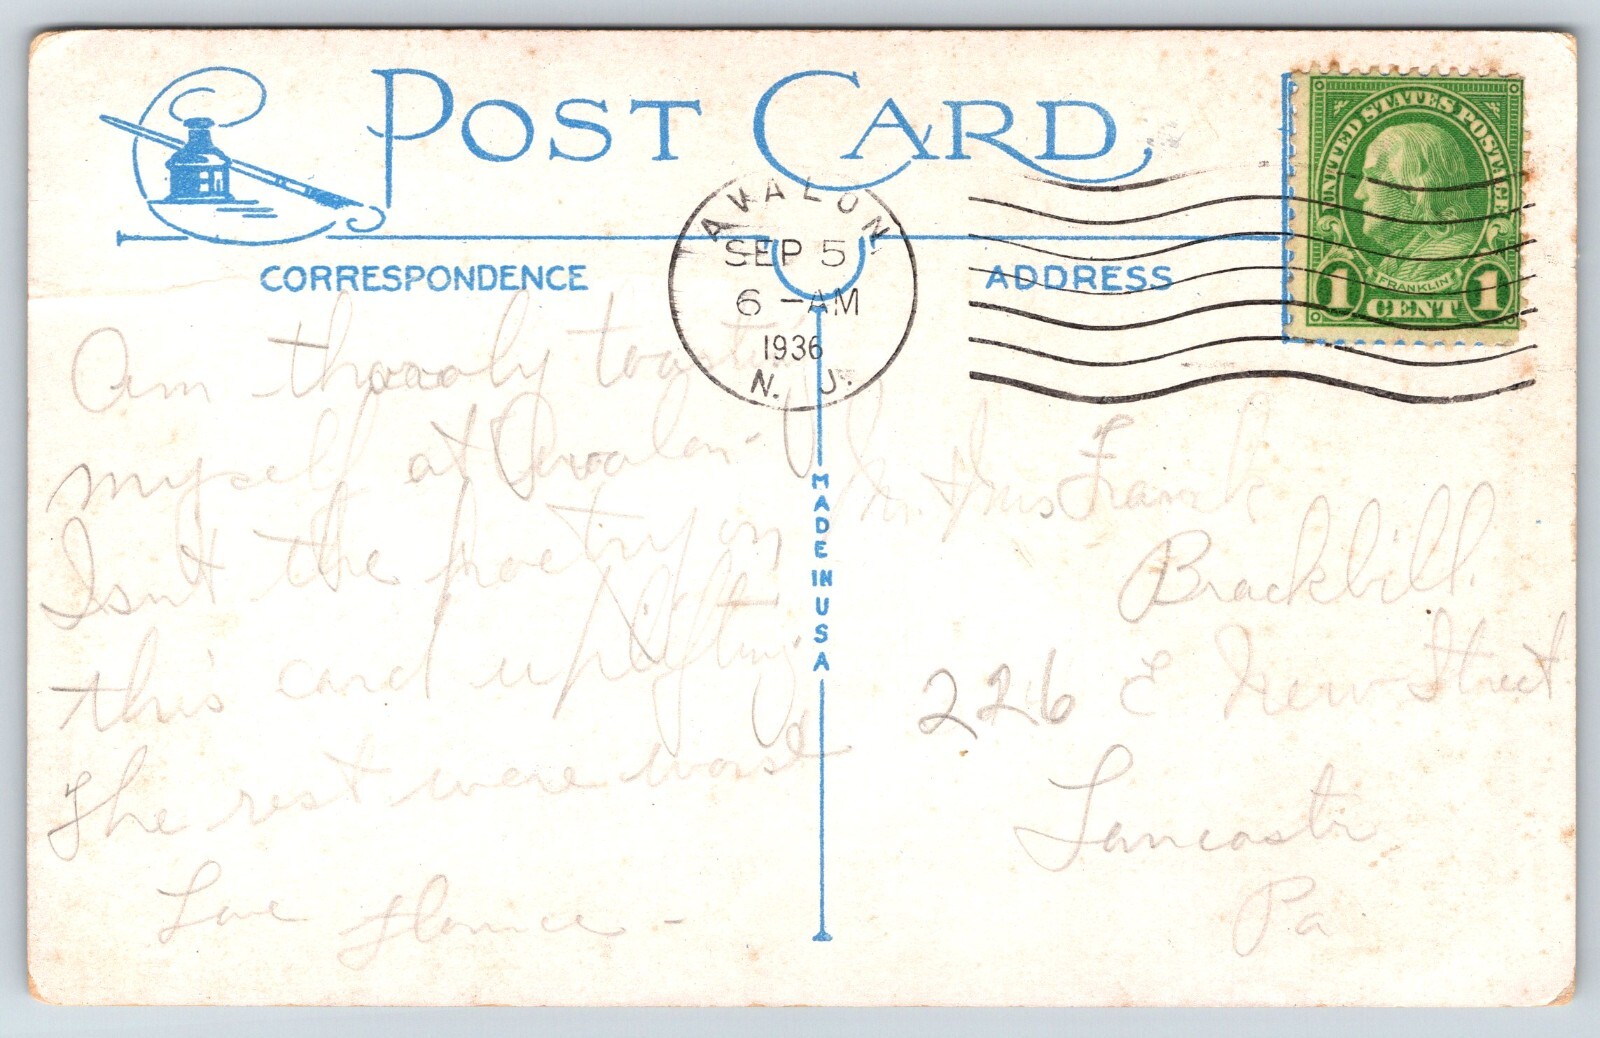 POST CARD
CORRESPONDENCE
ADDRESS
AVALON
SEP 5
6 - AM
1936
N. J.
UNITED STATES POSTAGE
FRANKLIN
1 CENT 1
MADE IN USA
Am thorooly toasting
myself at Avalon -
Isn't the poetry on
this card uplifting
The rest were worse
Love Florence -
Mr. & Mrs Frank
Brackbill.
226 E New Street
Lancaster
Pa